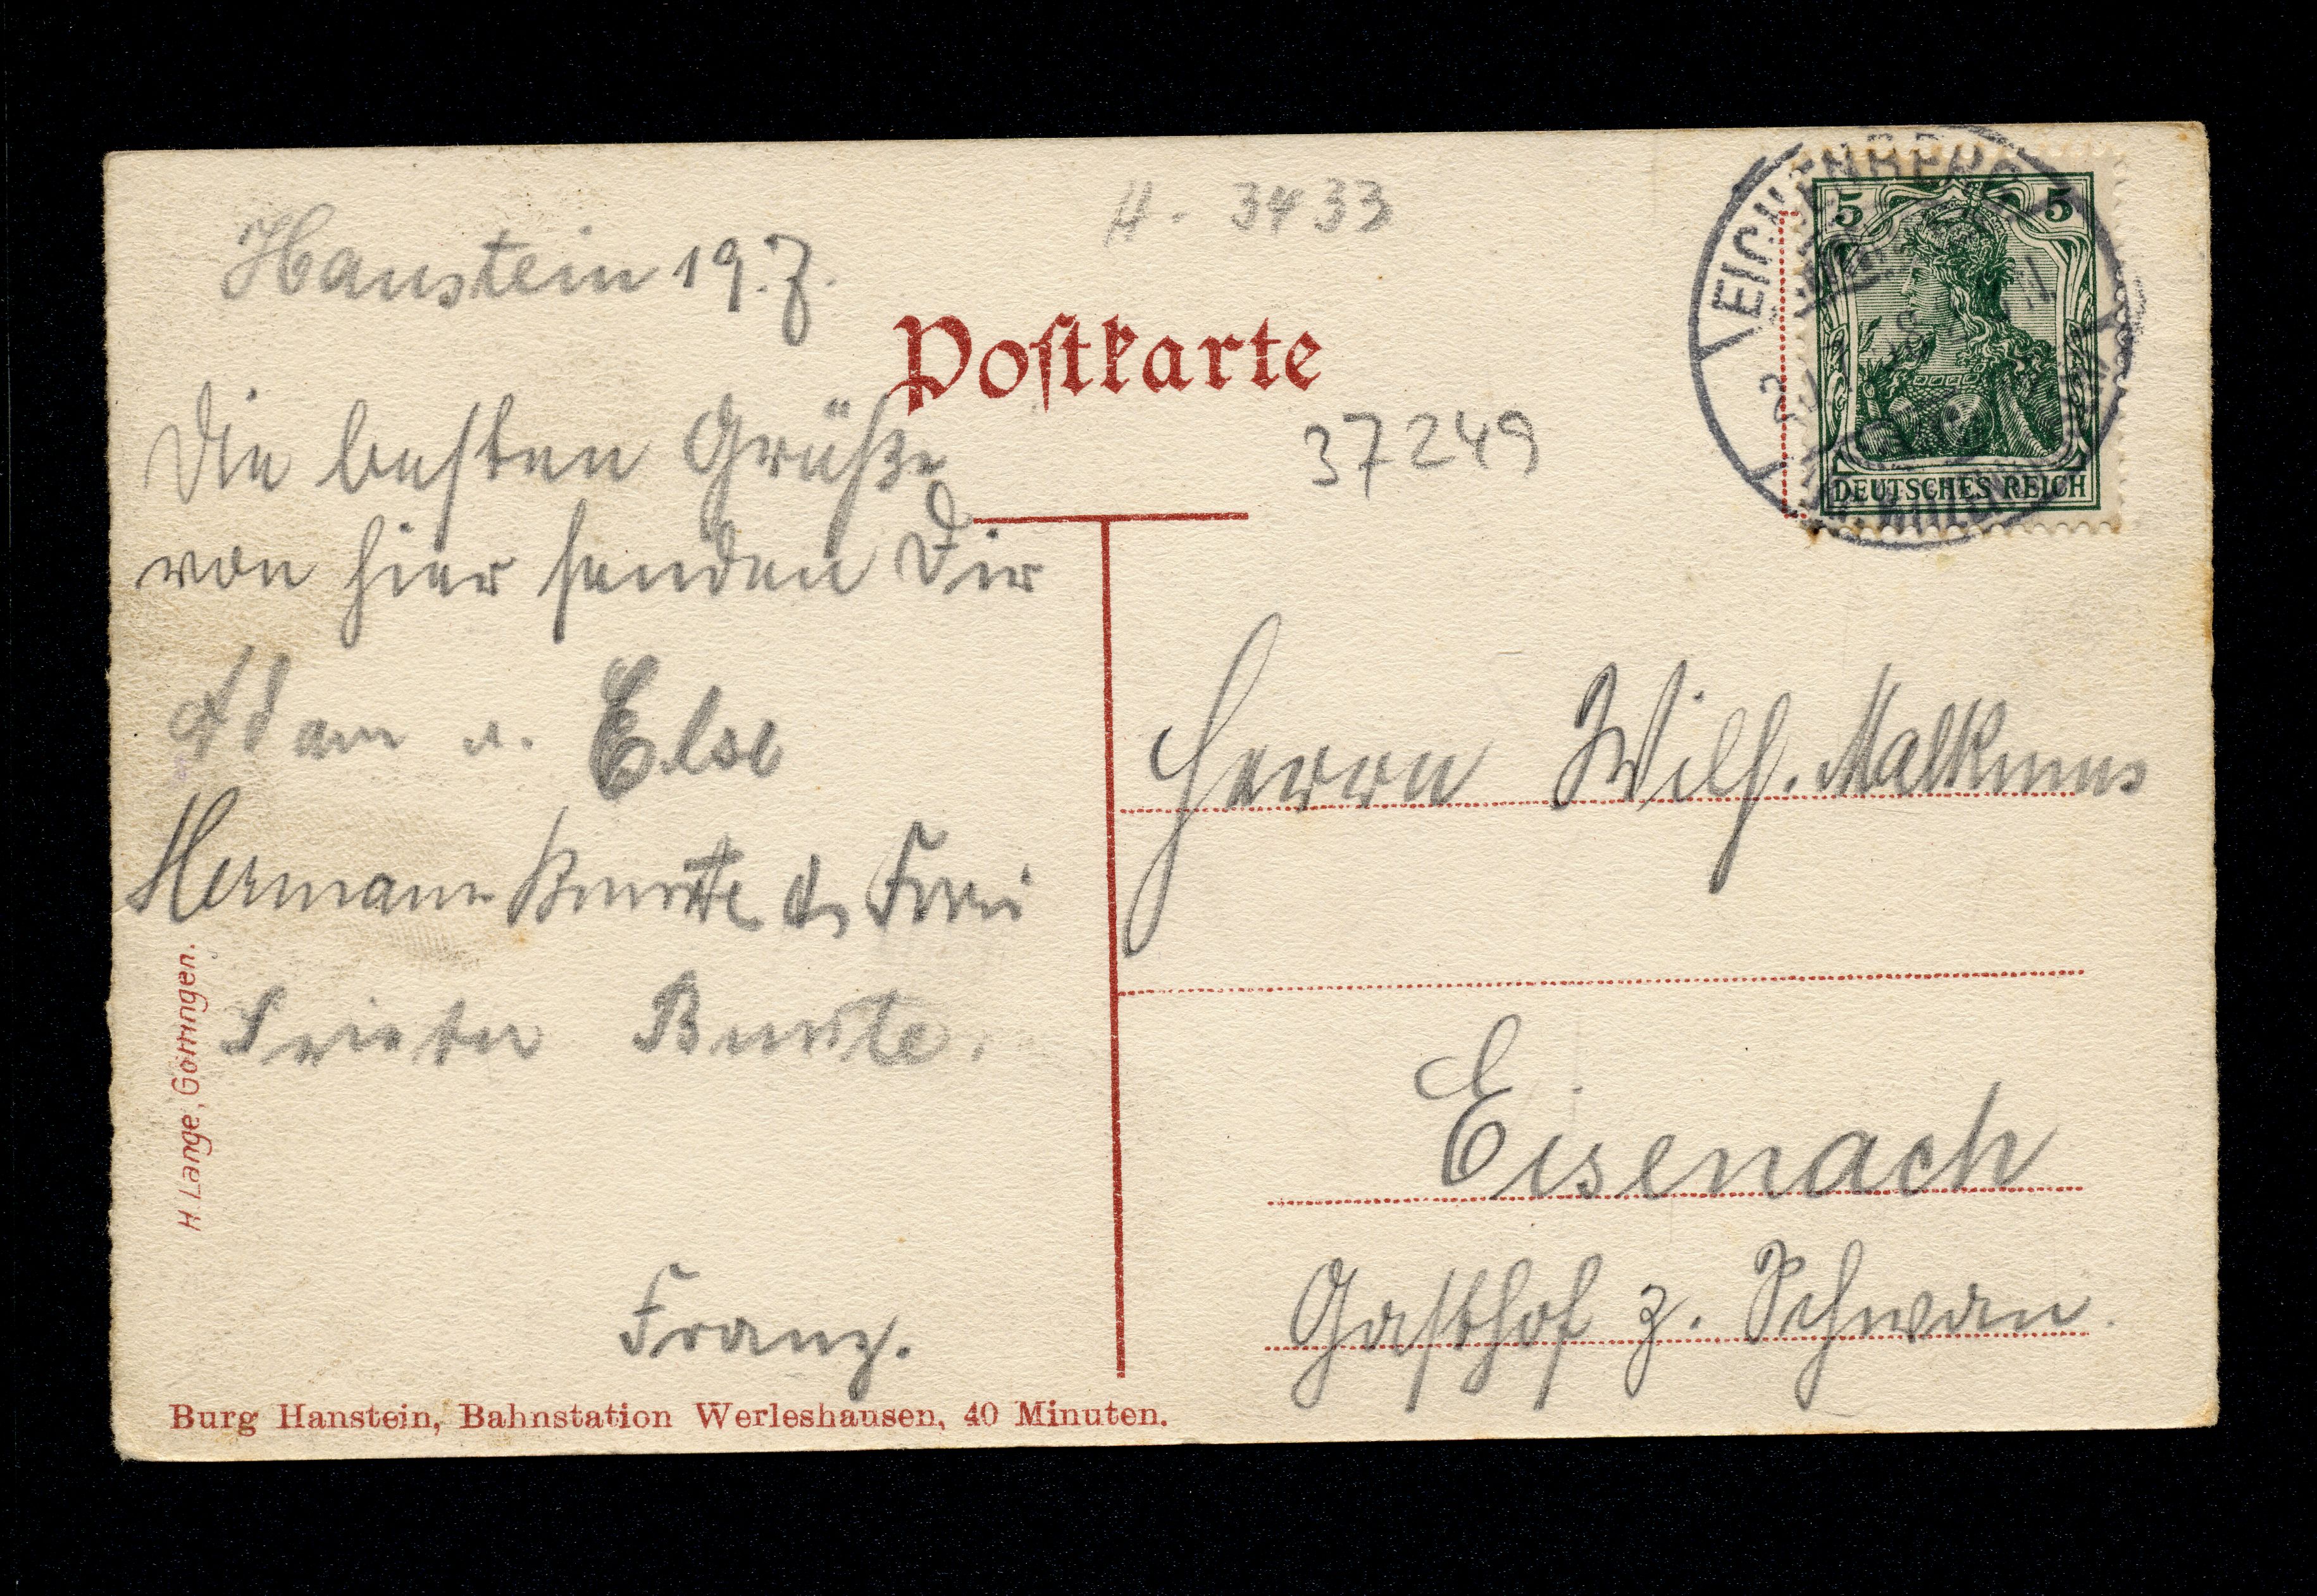 Hanstein 19.7.
H. 3433
Postkarte
37249
EICHENBERG
5 5
DEUTSCHES REICH
Die besten Grüße
von hier senden Dir
Adam u. Else
Hermann Bunte Frau
Bunte.
Franz.
Herrn Wilh. Malkmus
Eisenach
Gasthof z. Schwan.
H. Lange, Göttingen.
Burg Hanstein, Bahnstation Werleshausen, 40 Minuten.